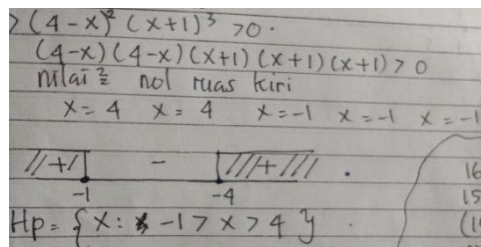 > (4-x)² (x+1)³ >0.
(4-x)(4-x)(x+1)(x+1)(x+1)>0
nilai² nol ruas kiri
x=4 x=4 x=-1 x=-1 x=-1
//+/ - ///+/// .
-1 -4
16
15
Hp= {x: -1>x>4}
(1